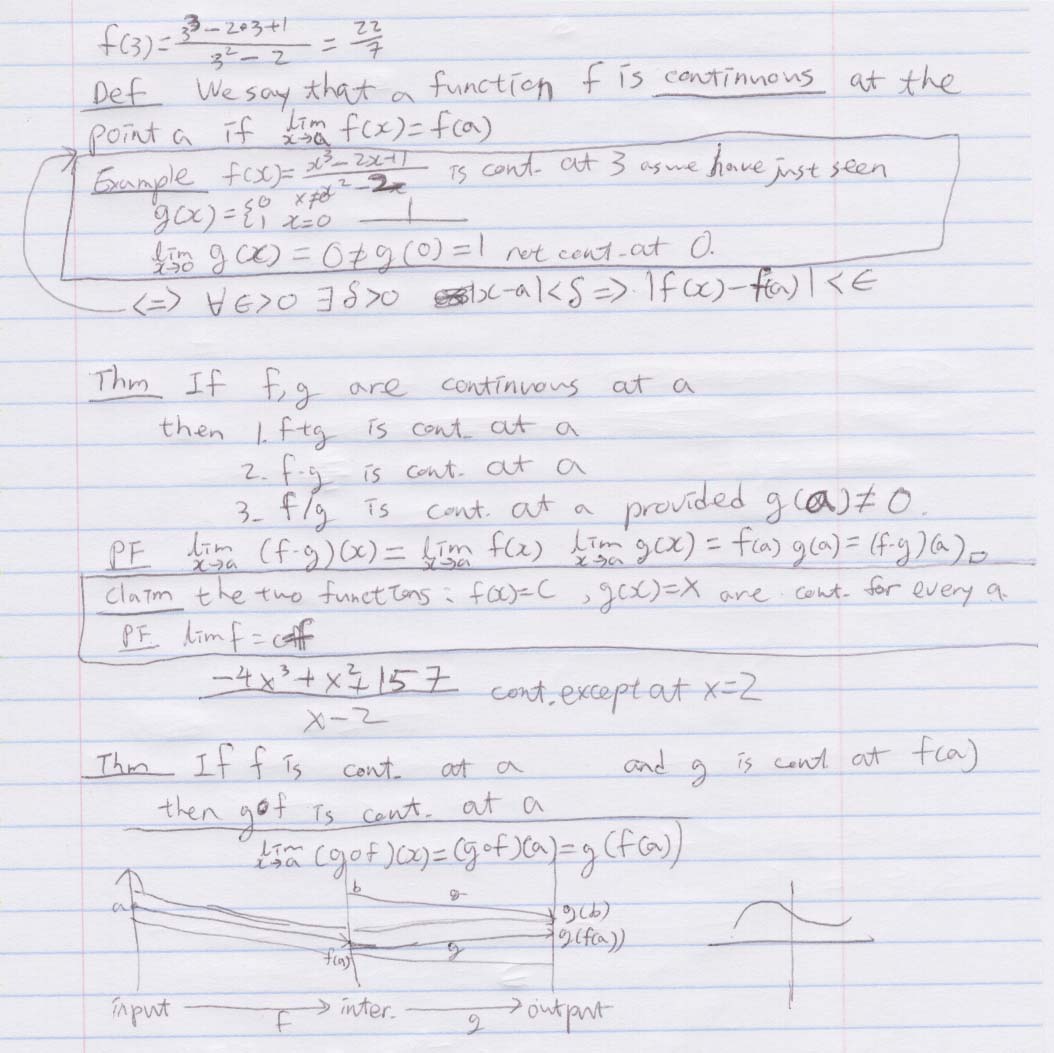 f(3) = (3³ - 2·3 + 1)/(3² - 2) = 22/7
Def We say that a function f is continuous at the
point a if lim x→a f(x) = f(a)
Example f(x) = (x³ - 2x + 1)/(x² - 2) is cont. at 3 as we have just seen
g(x) = { 0 x≠0
1 x=0
lim x→0 g(x) = 0 ≠ g(0) = 1 not cont. at 0.
<=> ∀ ∈>0 ∃ δ>0 |x-a|<δ => |f(x)-f(a)|<∈
Thm If f, g are continuous at a
then 1. f+g is cont. at a
2. f·g is cont. at a
3. f/g is cont. at a provided g(a) ≠ 0.
PF lim x→a (f·g)(x) = lim x→a f(x) lim x→a g(x) = f(a) g(a) = (f·g)(a) □
Claim the two functions: f(x)=C, g(x)=X are cont. for every a.
PF. lim f = c
(-4x³ + x² + 157)/(x-2) cont. except at x=2
Thm If f is cont. at a and g is cont at f(a)
then g∘f is cont. at a
lim x→a (g∘f)(x) = (g∘f)(a) = g(f(a))
a b g g(b)
f(a) g g(f(a))
input f inter. g output